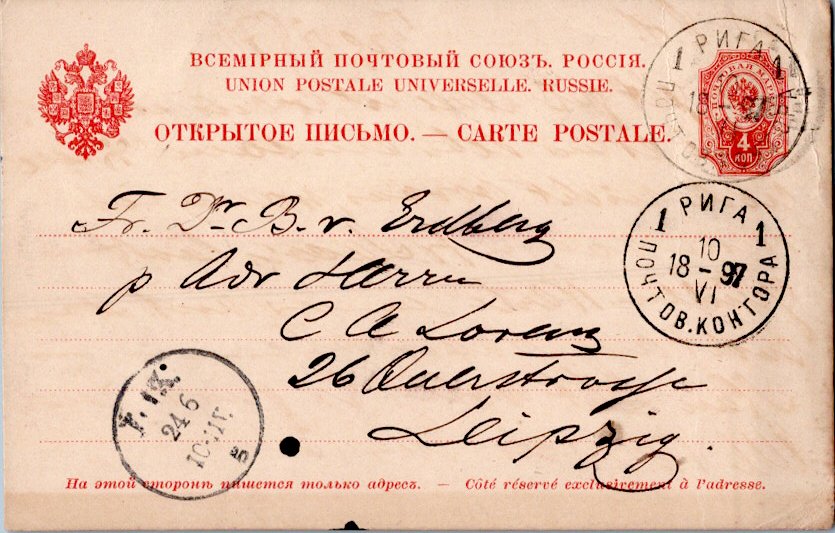 ВСЕМІРНЫЙ ПОЧТОВЫЙ СОЮЗЪ. РОССІЯ.
UNION POSTALE UNIVERSELLE. RUSSIE.
ОТКРЫТОЕ ПИСЬМО. — CARTE POSTALE.
ПОЧТОВАЯ МАРКА
4
КОП
1 РИГА 1
18
1 РИГА 1
10
18 - 97
VI
ПОЧТОВ. КОНТОРА
Fr. Dr B. v. Erdberg
p Adr Herrn
C A Lorenz
26 Querstrasse
Leipzig.
24 6
На этой сторонѣ пишется только адресъ. — Côté réservé exclusivement à l'adresse.